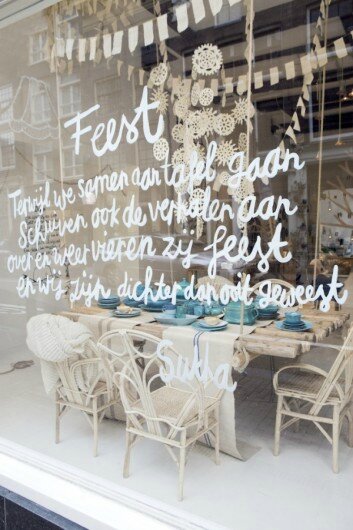 Feest
Terwijl we samen aan tafel gaan
Schuiven ook de verhalen aan
over en weer vieren zij feest
en wij zijn dichter dan ooit geweest
Sukha